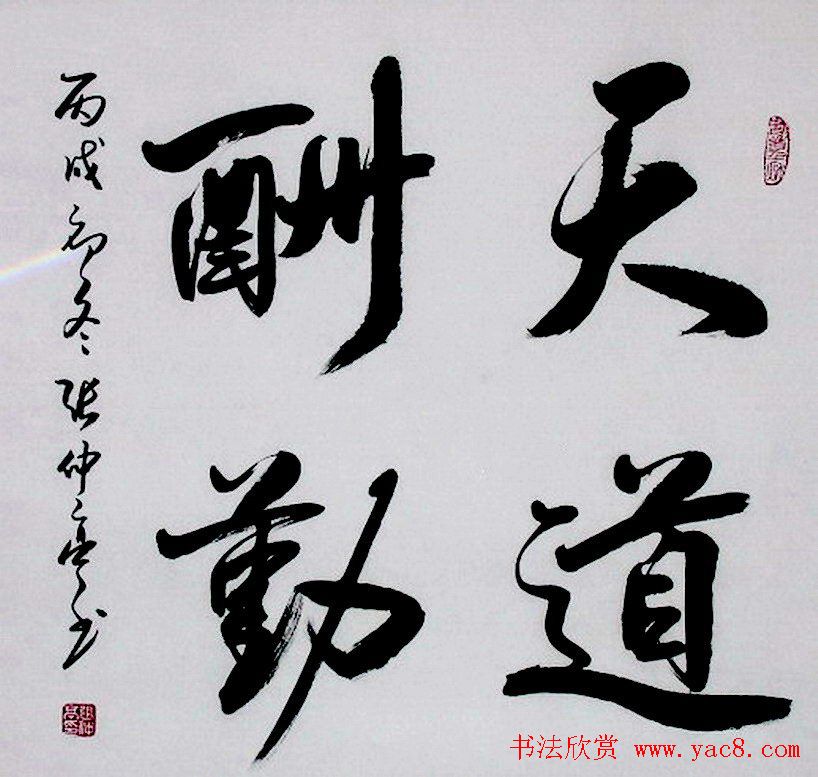 天道
酬勤
丙戌初冬张仲亭书
书法欣赏 www.yac8.com